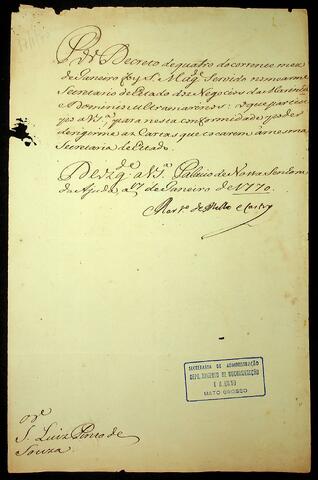 Por Decreto de quatro do corrente mez
de Janeiro foy S. Mag.e Servido nomearme
Secretario de Estado dos Negocios da Marinha
e Dominios ultramarinos: o que participo
a V. S.a para nesta conformidade poder
dirigirme as Cartas que tocarem à mesma
Secretaria de Estado.
D.s g.e a V. S.a Palacio de Nossa Senhora
da Ajuda a 17 de Janeiro de 1770.
Mart.o de Mello e Castro
SECRETARIA DE ADMINISTRAÇÃO
DEPARTAMENTO DE DOCUMENTAÇÃO
E ARQUIVO
MATO GROSSO
S. Luiz Pinto de
Souza